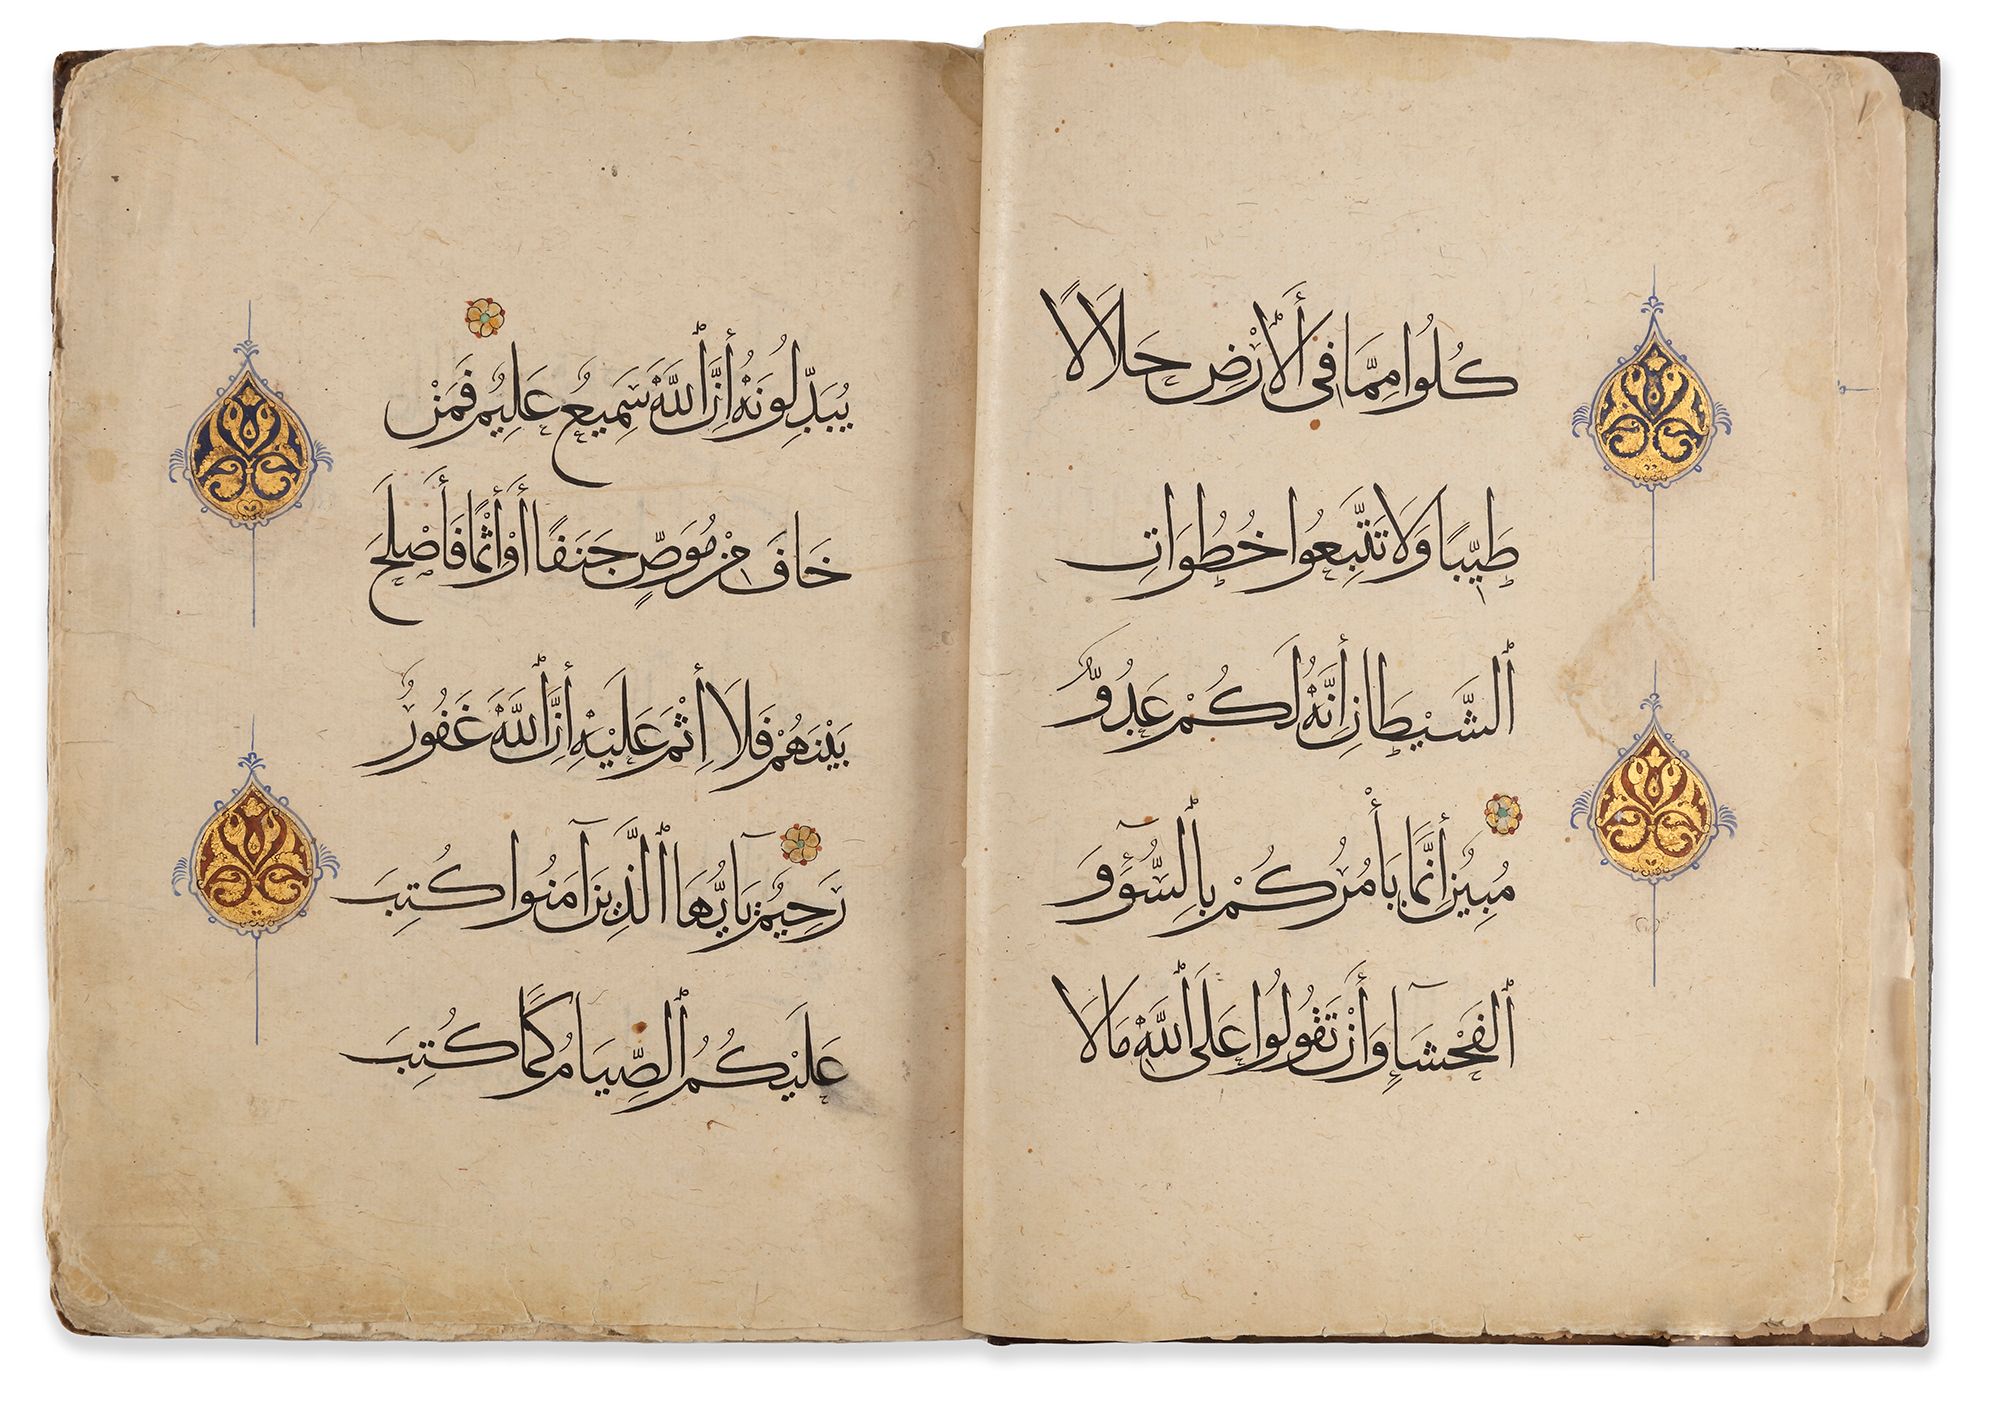 كُلُوا مِمَّا فِى ٱلْأَرْضِ حَلَالًا
طَيِّبًا وَلَا تَتَّبِعُوا خُطُوَاتِ
ٱلشَّيْطَانِ إِنَّهُ لَكُمْ عَدُوٌّ
مُبِينٌ إِنَّمَا يَأْمُرُكُمْ بِٱلسُّوٓءِ وَ
ٱلْفَحْشَآءِ وَأَنْ تَقُولُوا عَلَى ٱللَّهِ مَا لَا
يُبَدِّلُونَهُ إِنَّ ٱللَّهَ سَمِيعٌ عَلِيمٌ فَمَنْ
خَافَ مِنْ مُوَصٍّ جَنَفًا أَوْ إِثْمًا فَأَصْلَحَ
بَيْنَهُمْ فَلَا إِثْمَ عَلَيْهِ إِنَّ ٱللَّهَ غَفُورٌ
رَحِيمٌ يَآ أَيُّهَا ٱلَّذِينَ آمَنُوا كُتِبَ
عَلَيْكُمُ ٱلصِّيَامُ كَمَا كُتِبَ